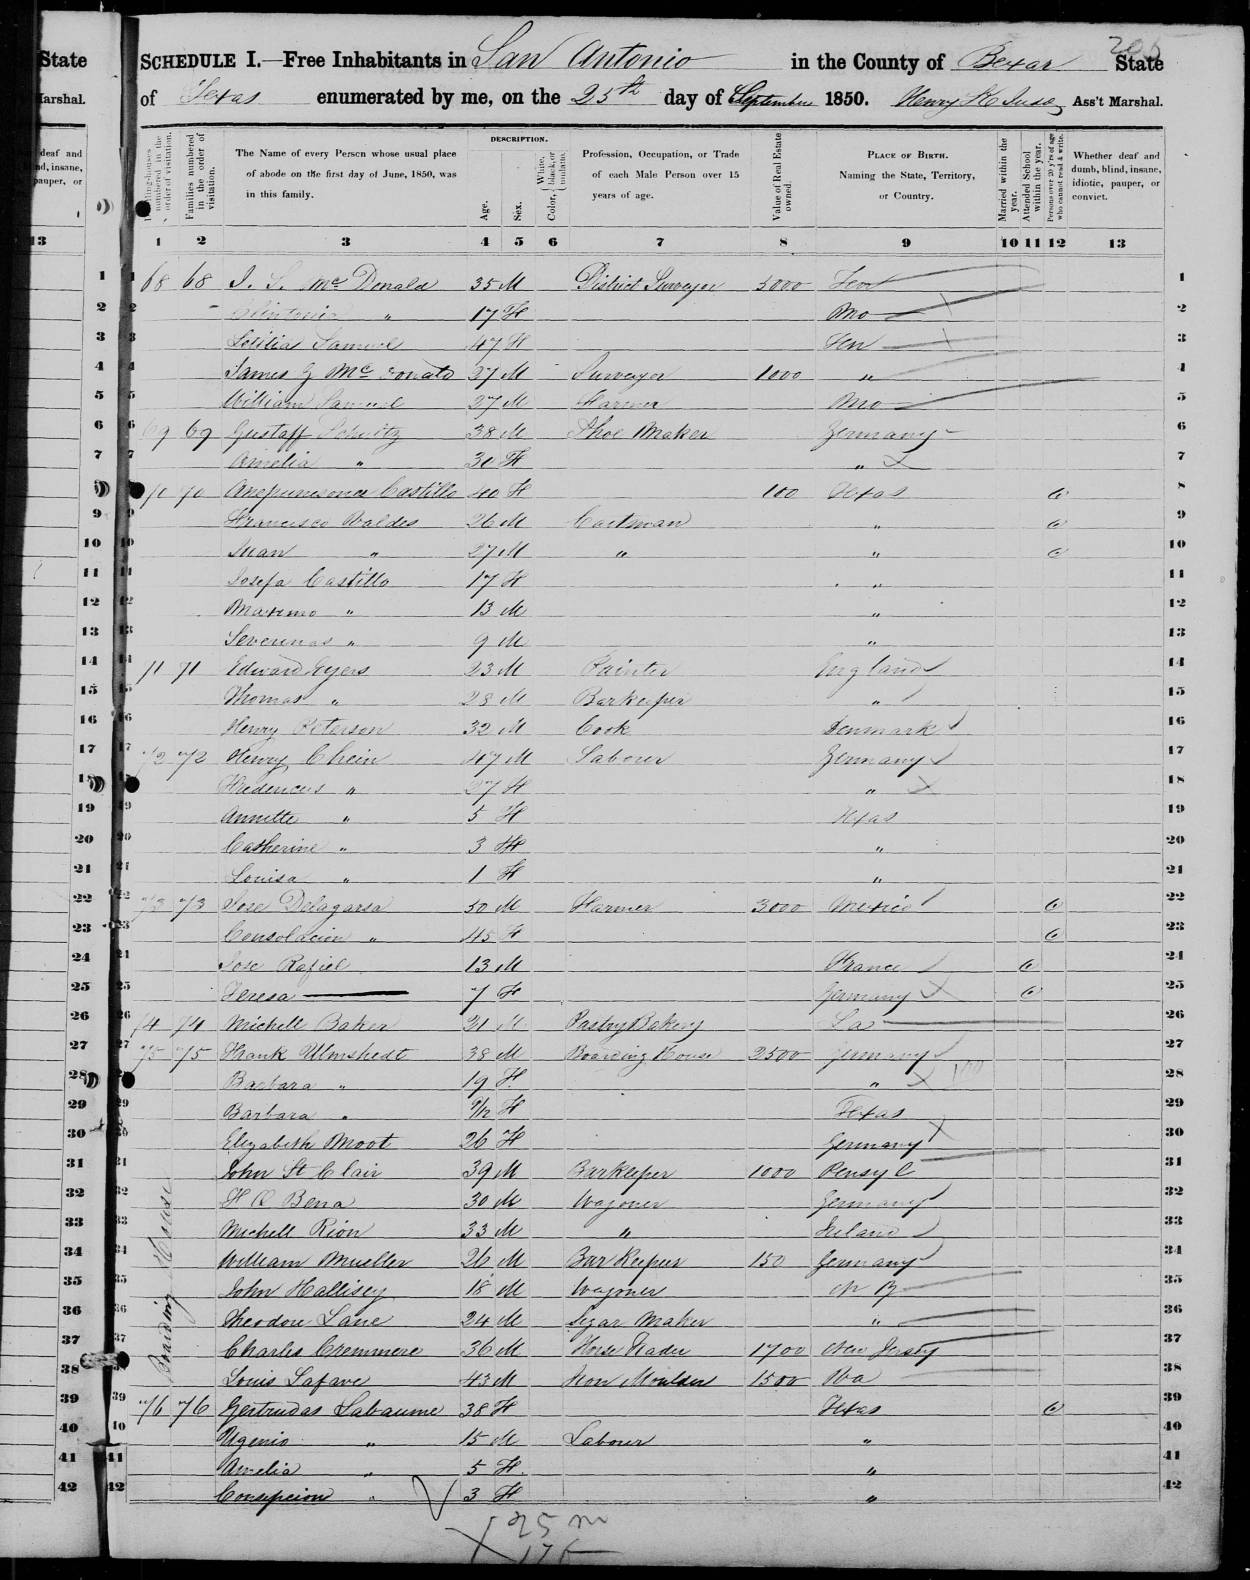 205
SCHEDULE I.—Free Inhabitants in San Antonio in the County of Bexar State
of Texas enumerated by me, on the 25th day of September 1850. Henry Ass't Marshal.
Dwelling-houses numbered in the order of visitation.
Families numbered in the order of visitation.
The Name of every Person whose usual place of abode on the first day of June, 1850, was in this family.
DESCRIPTION.
Age.
Sex.
Color, White, black, or mulatto.
Profession, Occupation, or Trade of each Male Person over 15 years of age.
Value of Real Estate owned.
PLACE OF BIRTH. Naming the State, Territory, or Country.
Married within the year.
Attended School within the year.
Persons over 20 y'rs of age who cannot read & write.
Whether deaf and dumb, blind, insane, idiotic, pauper, or convict.
1 2 3 4 5 6 7 8 9 10 11 12 13
1 68 68 J. S. McDonald 35 M District Surveyor 5000 1
2 " 17 F Mo 2
3 Letitia Samuel 47 F 3
4 James G McDonald 27 M Surveyor 1000 " 4
5 William Samuel 27 M Farmer Mo 5
6 69 69 Gustaff Schultz 38 M Shoe Maker Germany 6
7 Amelia " 30 F " 7
8 70 70 Castillo 40 F 100 Texas 8
9 Francisco Valdes 26 M Cartman " 9
10 Juan " 27 M " " 10
11 Josefa Castillo 17 F " 11
12 Maximo " 13 M " 12
13 " 9 M " 13
14 71 71 Edward Eyers 23 M Painter England 14
15 Thomas " 28 M Barkeeper " 15
16 Henry Peterson 32 M Cook Denmark 16
17 72 72 Henry Chein 47 M Laborer Germany 17
18 " 27 F " 18
19 Annette " 5 F Texas 19
20 Catherine " 3 F " 20
21 Louisa " 1 F " 21
22 73 73 Jose Delagarsa 50 M Farmer 3000 Mexico 22
23 Consolacion " 45 F 23
24 Jose Rafiel 13 M France 24
25 Teresa 7 F Germany 25
26 74 74 Michell Baker 21 M Pastry Bakery La 26
27 75 75 Frank Ulmshedt 38 M Boarding House 2500 Germany 27
28 Barbara " 19 F " 28
29 Barbara " 9/12 F Texas 29
30 Elizabeth Moot 26 F Germany 30
31 John St Clair 39 M Barkeeper 1000 Pensy 31
32 Bena 30 M Wagoner Germany 32
33 Michell Rion 33 M " Ireland 33
34 William Mueller 26 M Bar Keeper 150 Germany 34
35 John Hallisey 18 M Wagoner N Y 35
36 Theodore Lane 24 M Segar Maker " 36
37 Charles Cremmere 36 M Horse Trader 1700 New Jersey 37
38 Louis Lafave 43 M Iron Moulder 1500 Va 38
Boarding House
39 76 76 Gertrudas Labaume 38 F Texas 39
40 Ugenio " 15 M Laborer " 40
41 Amelia " 5 F " 41
42 Consepcion " 3 F " 42
25 m
17 f